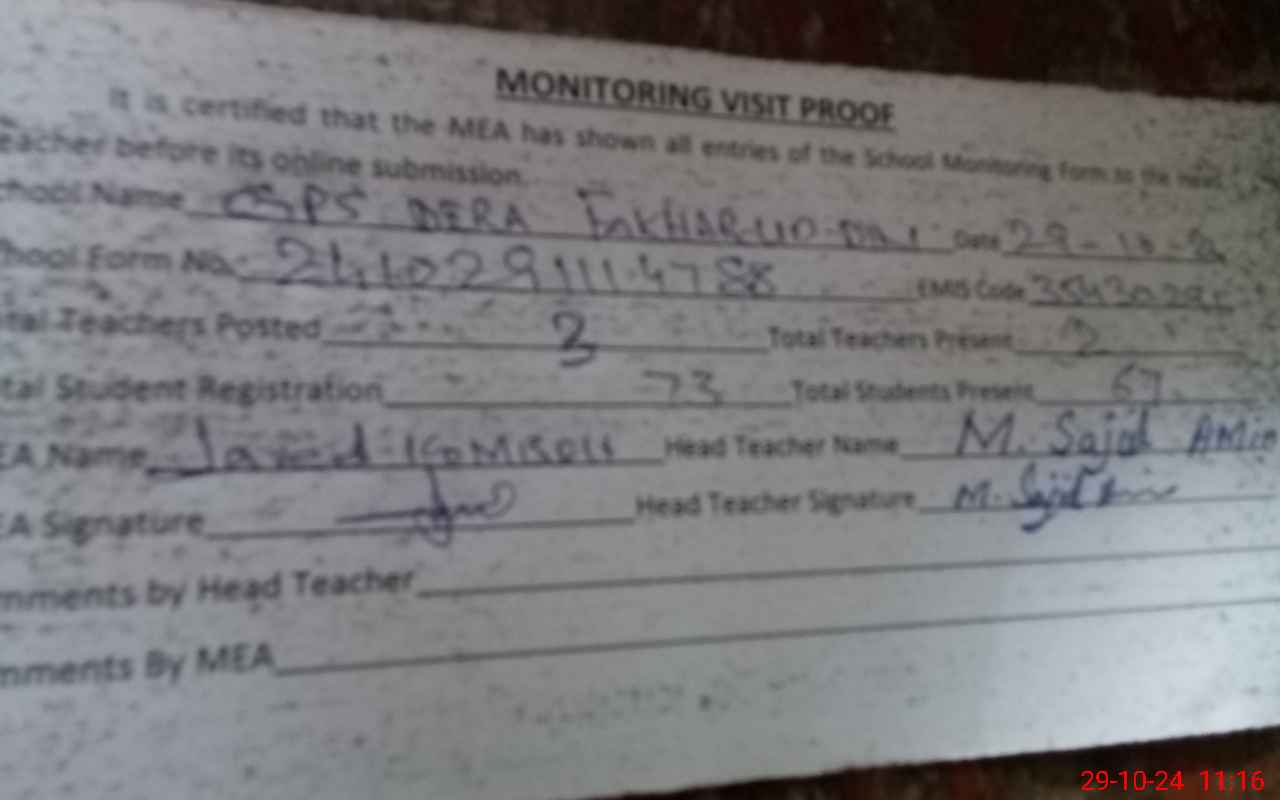 MONITORING VISIT PROOF
It is certified that the MEA has shown all entries of the School Monitoring Form to the Head
eacher before its online submission.
chool Name GPS DERA Date 29-10-2
hool Form No. EMIS Code
tal Teachers Posted 3 Total Teachers Present 2
tal Student Registration 73 Total Students Present 67
EA Name Javed Head Teacher Name M. Sajid AMin
EA Signature Head Teacher Signature M. Sajid Amin
mments by Head Teacher
mments By MEA
29-10-24 11:16